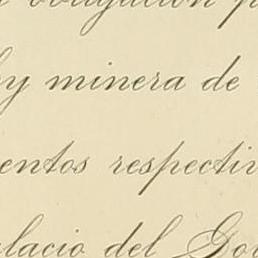 obligacion p
ley minera de
entos respectiv
alacio del Go